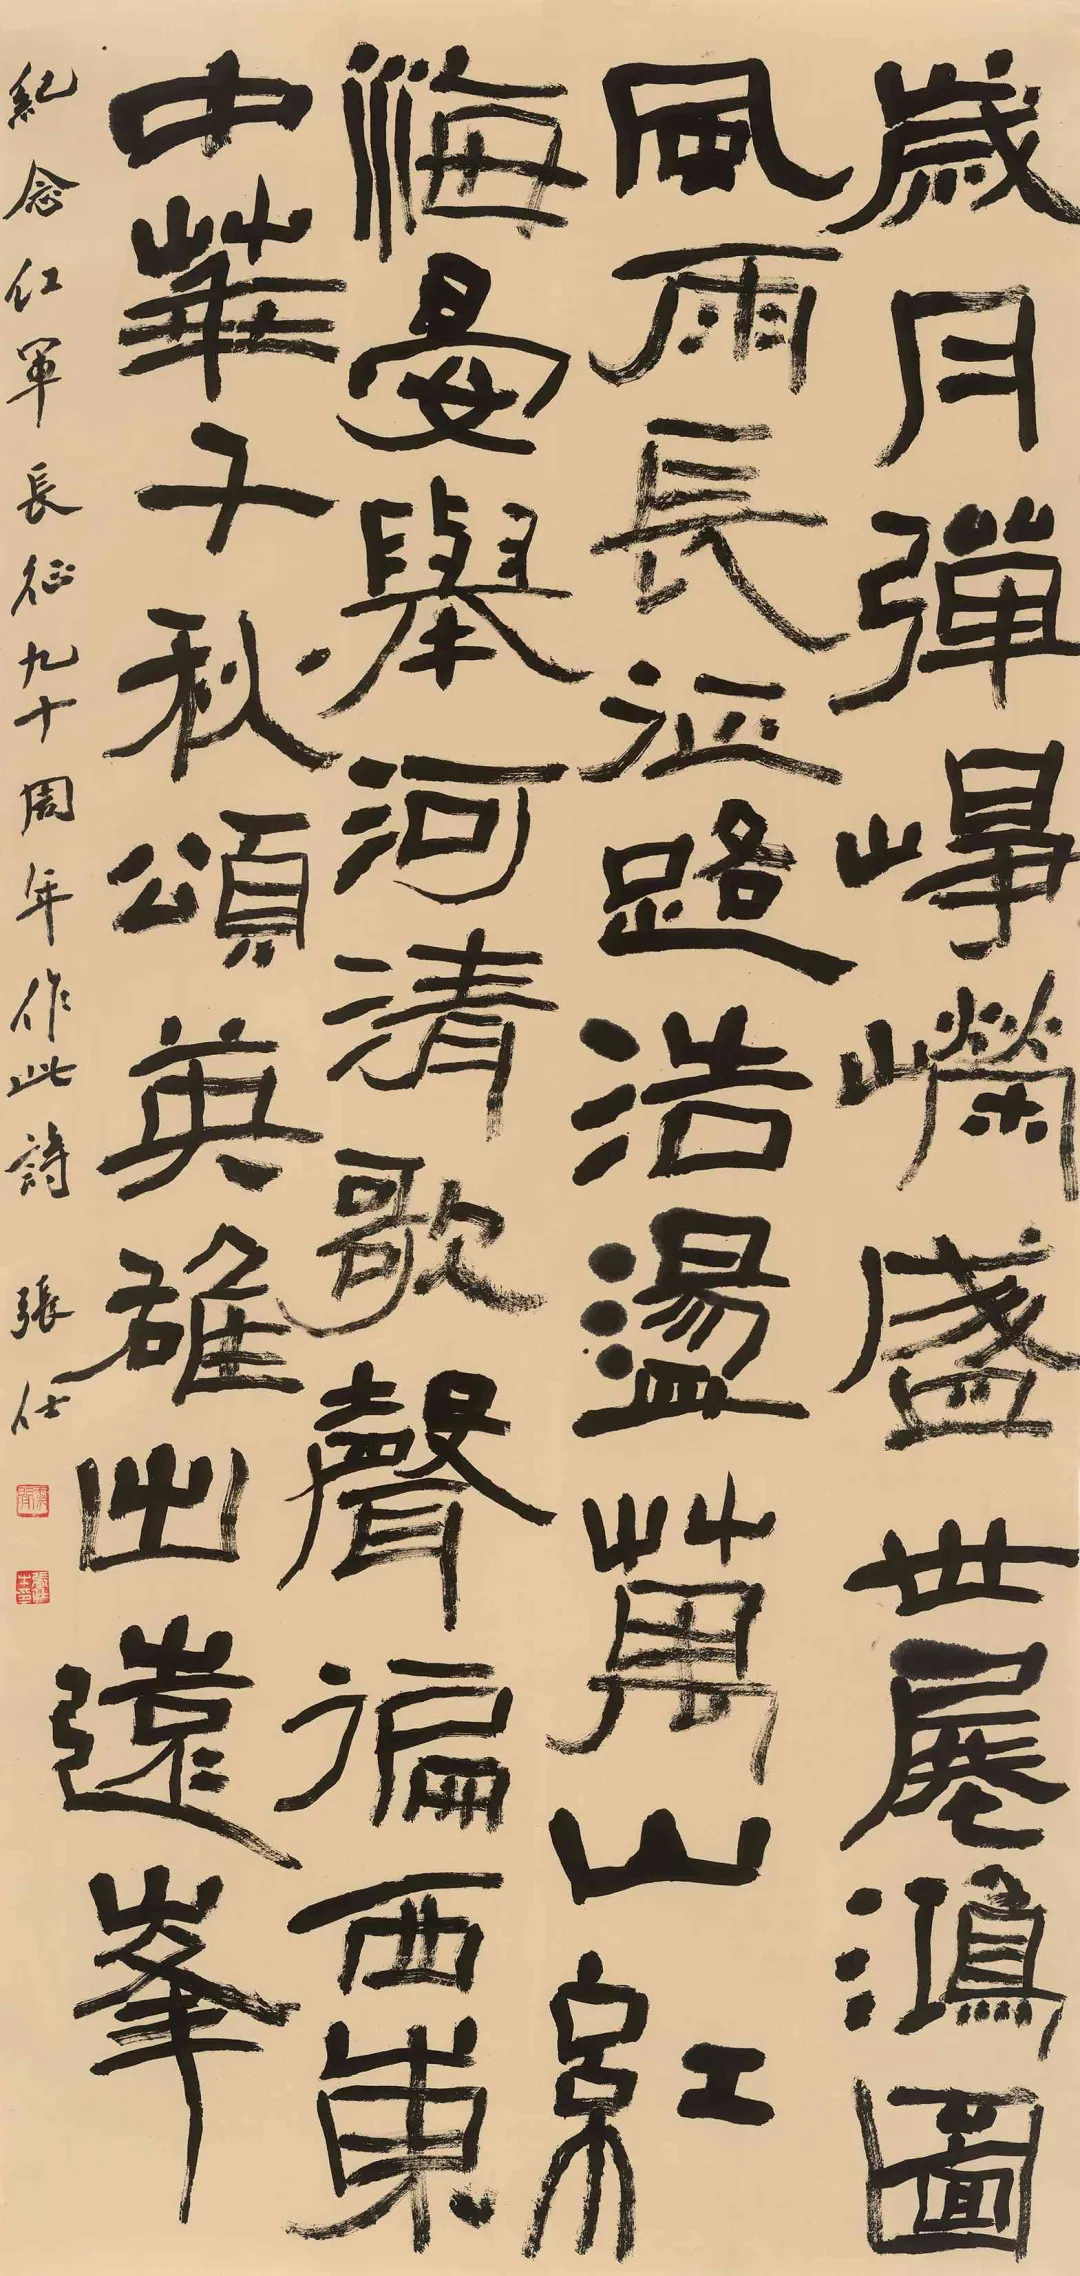 歲月彈崢嶸盛世展鴻圖
風雨長征路浩盪萬山紅
海晏舉河清歌聲徧西東
中華千秋頌英雄出遠峯
紀念紅軍長征九十周年作此詩 張仕